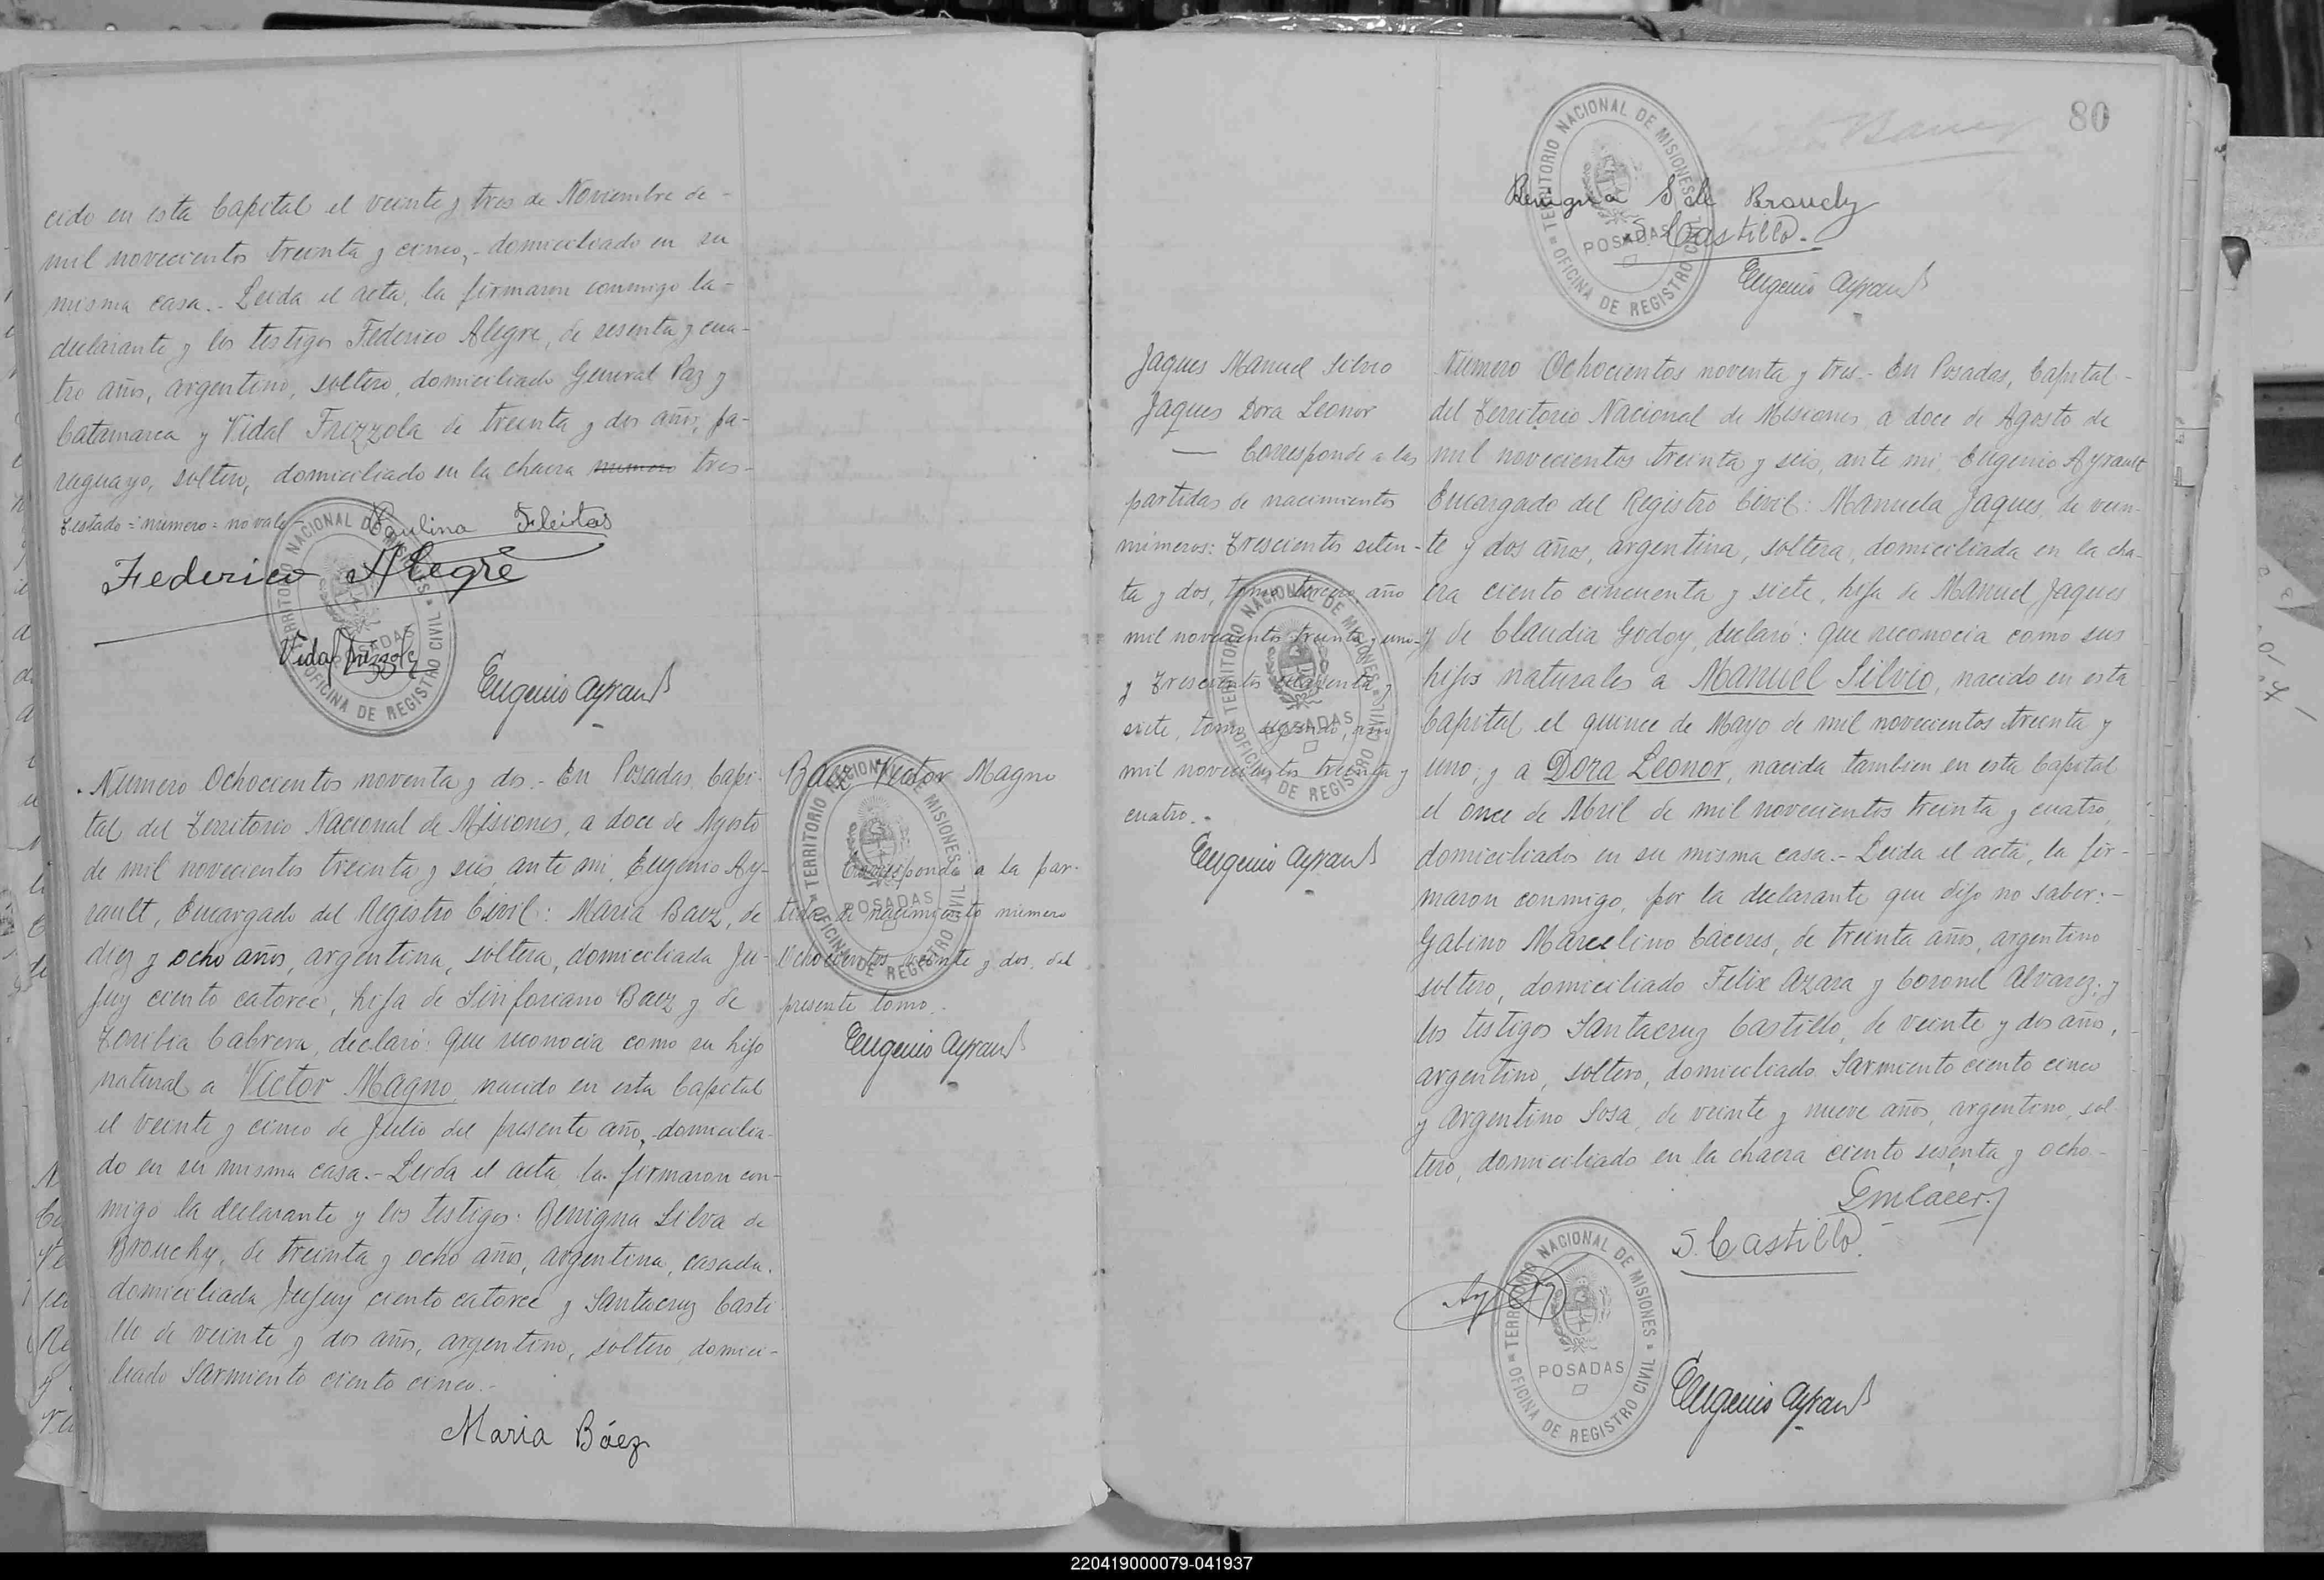 cido en esta Capital el veinte y tres de Noviembre de-
mil novecientos treinta y cinco,- domiciliado en su
misma casa.- Leida el acta, la firmaron conmigo la-
declarante y los testigos Federico Alegre, de sesenta y cua-
tro años, argentino, soltero, domiciliado General Paz y
Catamarca y Vidal Frizzola de treinta y dos años, pa-
raguayo, soltero, domiciliado en la chacra numero tres-
Testado = numero = no vale
Paulina Fleitas
Federico Alegre
Vidal Frizzola
Eugenio Ayrault
Numero Ochocientos noventa y dos.- En Posadas, Capi-
tal del Territorio Nacional de Misiones, a doce de Agosto
de mil novecientos treinta y seis, ante mi, Eugenio Ay-
rault, Encargado del Registro Civil: Maria Baez, de
diez y ocho años, argentina, soltera, domiciliada Ju-
juy ciento catorce, hija de Sinforiano Baez y de
Toribia Cabrera, declaró: que reconocia como su hijo
natural a Victor Magno, nacido en esta Capital
el veinte y cinco de Julio del presente año, domicilia-
do en su misma casa.- Leida el acta, la firmaron con-
migo la declarante y los testigos: Benigna Silva de
Brouchy, de treinta y ocho años, argentina, casada,
domiciliada Jujuy ciento catorce y Santacruz Casti
llo de veinte y dos años, argentino, soltero, domici-
liado Sarmiento ciento cinco.-
Maria Báez
Baez Victor Magno
Corresponde a la par-
tida de nacimiento número
Ochocientos veinte y dos, del
presente tomo.-
Eugenio Ayrault
80
Benigna S. de Brouchy
S. Castillo.
Eugenio Ayrault
Jaques Manuel Silvio
Jaques Dora Leonor
— Corresponde a las
partidas de nacimientos
números: Trescientos seten-
ta y dos, tomo tercero, año
mil novecientos treinta y uno
y Trescientos
siete, tomo segundo, año
mil novecientos treinta y
cuatro.-
Eugenio Ayrault
Número Ochocientos noventa y tres.- En Posadas, Capital-
del Territorio Nacional de Misiones, a doce de Agosto de
mil novecientos treinta y seis, ante mi, Eugenio Ayrault
Encargado del Registro Civil: Manuela Jaques, de vein-
te y dos años, argentina, soltera, domiciliada en la cha-
cra ciento cincuenta y siete, hija de Manuel Jaques
y de Claudia Godoy, declaró: que reconocia como sus
hijos naturales a Manuel Silvio, nacido en esta
Capital el quince de Mayo de mil novecientos treinta y
uno; y a Dora Leonor, nacida tambien en esta Capital
el once de Abril de mil novecientos treinta y cuatro,
domiciliados en su misma casa.- Leida el acta, la fir-
maron conmigo, por la declarante que dijo no saber:-
Galino Marcelino Cáceres, de treinta años, argentino
soltero, domiciliado Felix Azara y Coronel Alvarez; y
los testigos Santacruz Castillo, de veinte y dos años,
argentino, soltero, domiciliado Sarmiento ciento cinco
y Argentino Sosa, de veinte y nueve años, argentino, sol-
tero, domiciliado en la chacra ciento sesenta y ocho.-
S. Castillo.
Eugenio Ayrault
TERRITORIO NACIONAL DE MISIONES
POSADAS
OFICINA DE REGISTRO CIVIL
220419000079-041937